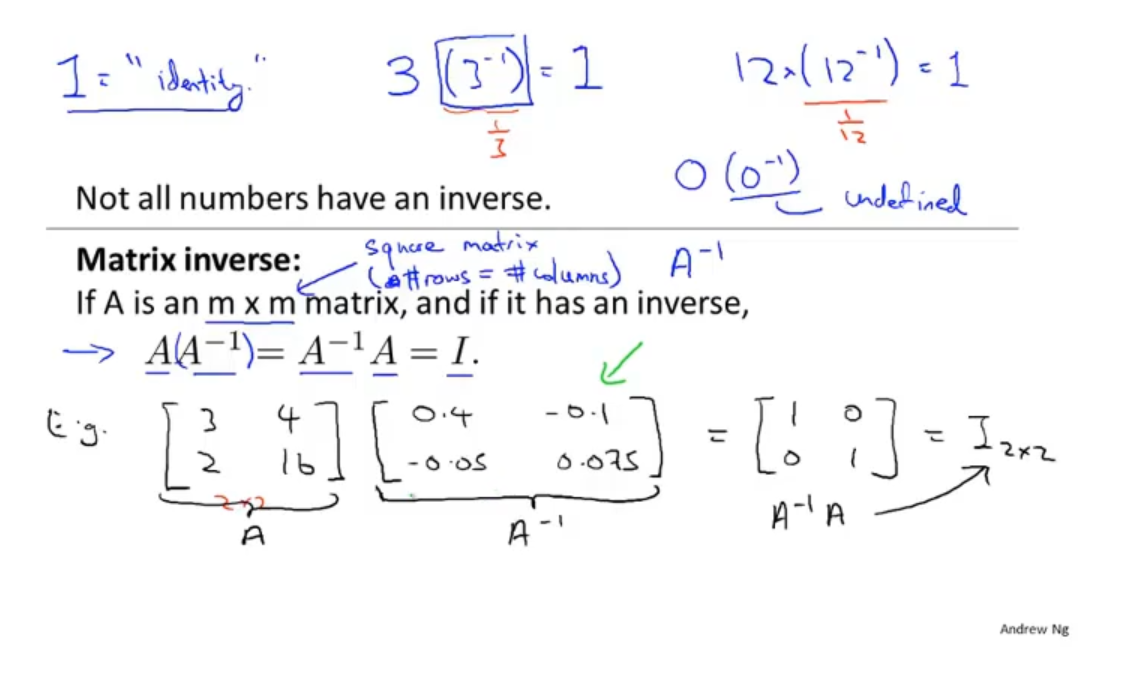 1 = "identity." 3 (3⁻¹) = 1 12×(12⁻¹) = 1
1/3 1/12
0 (0⁻¹) undefined
Not all numbers have an inverse.
Matrix inverse: square matrix A⁻¹
(#rows = #columns)
If A is an m x m matrix, and if it has an inverse,
→ A(A⁻¹) = A⁻¹A = I.
E.g. [3 4] [0.4 -0.1] = [1 0] = I 2×2
[2 16] [-0.05 0.075] [0 1]
2×2
A A⁻¹ A⁻¹A
Andrew Ng